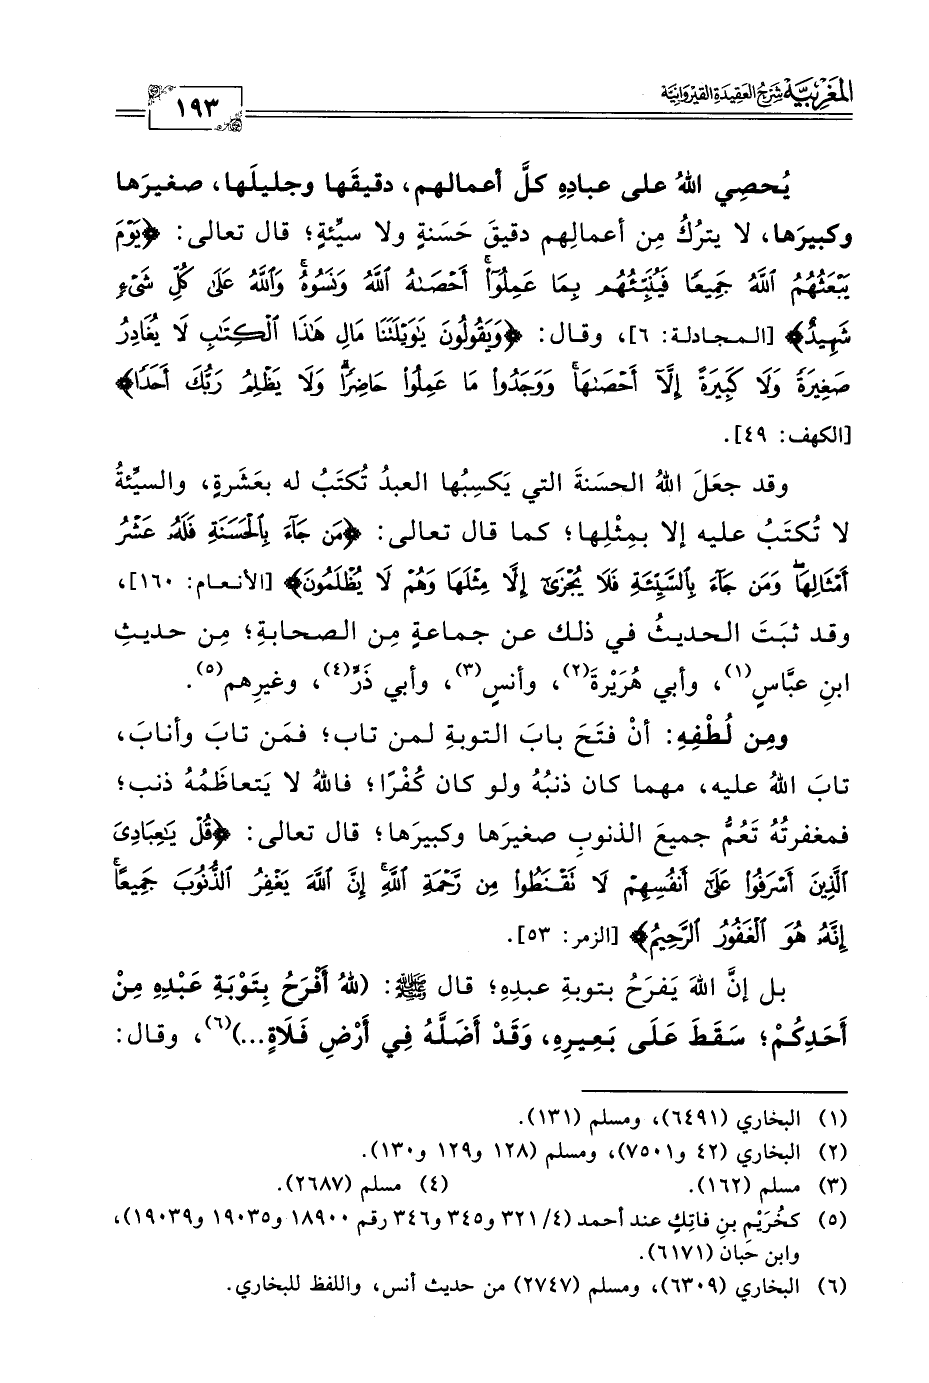 المَغْرِبيَّة شَرْحُ العَقِيدَةِ القَيْرَوَانِيَّة
١٩٣
يُحصِي اللهُ على عبادِهِ كلَّ أعمالهم، دقيقَها وجليلَها، صغيرَها
وكبيرَها، لا يترُكُ مِن أعمالِهم دقيقَ حَسَنةٍ ولا سيِّئةٍ؛ قال تعالى: ﴿يَوْمَ
يَبْعَثُهُمُ ٱللَّهُ جَمِيعًا فَيُنَبِّئُهُم بِمَا عَمِلُوٓا۟ۚ أَحْصَىٰهُ ٱللَّهُ وَنَسُوهُۚ وَٱللَّهُ عَلَىٰ كُلِّ شَىْءٍ
شَهِيدٌ﴾ [المجادلة: ٦]، وقال: ﴿وَيَقُولُونَ يَٰوَيْلَتَنَا مَالِ هَٰذَا ٱلْكِتَٰبِ لَا يُغَادِرُ
صَغِيرَةً وَلَا كَبِيرَةً إِلَّآ أَحْصَىٰهَاۚ وَوَجَدُوا۟ مَا عَمِلُوا۟ حَاضِرًاۗ وَلَا يَظْلِمُ رَبُّكَ أَحَدًا﴾
[الكهف: ٤٩].
وقد جعَلَ اللهُ الحسَنةَ التي يَكسِبُها العبدُ تُكتَبُ له بعَشَرةٍ، والسيِّئةُ
لا تُكتَبُ عليه إلا بمِثْلِها؛ كما قال تعالى: ﴿مَن جَآءَ بِٱلْحَسَنَةِ فَلَهُۥ عَشْرُ
أَمْثَالِهَاۖ وَمَن جَآءَ بِٱلسَّيِّئَةِ فَلَا يُجْزَىٰٓ إِلَّا مِثْلَهَا وَهُمْ لَا يُظْلَمُونَ﴾ [الأنعام: ١٦٠]،
وقد ثبَتَ الحديثُ في ذلك عن جماعةٍ مِن الصحابةِ؛ مِن حديثِ
ابنِ عبَّاسٍ(١)، وأبي هُرَيْرةَ(٢)، وأنسٍ(٣)، وأبي ذَرٍّ(٤)، وغيرِهم(٥).
ومِن لُطْفِهِ: أنْ فتَحَ بابَ التوبةِ لمن تاب؛ فمَن تابَ وأنابَ،
تابَ اللهُ عليه، مهما كان ذنبُهُ ولو كان كُفْرًا؛ فاللهُ لا يَتعاظَمُهُ ذنب؛
فمغفرتُهُ تَعُمُّ جميعَ الذنوبِ صغيرَها وكبيرَها؛ قال تعالى: ﴿قُلْ يَٰعِبَادِىَ
ٱلَّذِينَ أَسْرَفُوا۟ عَلَىٰٓ أَنفُسِهِمْ لَا تَقْنَطُوا۟ مِن رَّحْمَةِ ٱللَّهِۚ إِنَّ ٱللَّهَ يَغْفِرُ ٱلذُّنُوبَ جَمِيعًاۚ
إِنَّهُۥ هُوَ ٱلْغَفُورُ ٱلرَّحِيمُ﴾ [الزمر: ٥٣].
بل إنَّ اللهَ يَفرَحُ بتوبةِ عبدِهِ؛ قال ﷺ: (للهُ أَفْرَحُ بِتَوْبَةِ عَبْدِهِ مِنْ
أَحَدِكُمْ؛ سَقَطَ عَلَى بَعِيرِهِ، وَقَدْ أَضَلَّهُ فِي أَرْضِ فَلَاةٍ...)(٦)، وقال:
(١) البخاري (٦٤٩١)، ومسلم (١٣١).
(٢) البخاري (٤٢ و٧٥٠١)، ومسلم (١٢٨ و١٢٩ و١٣٠).
(٣) مسلم (١٦٢). (٤) مسلم (٢٦٨٧).
(٥) كخُرَيْمِ بنِ فاتِكٍ عند أحمد (٤/ ٣٢١ و٣٤٥ و٣٤٦ رقم ١٨٩٠٠ و١٩٠٣٥ و١٩٠٣٩)،
وابن حَبان (٦١٧١).
(٦) البخاري (٦٣٠٩)، ومسلم (٢٧٤٧) من حديث أنس، واللفظ للبخاري.